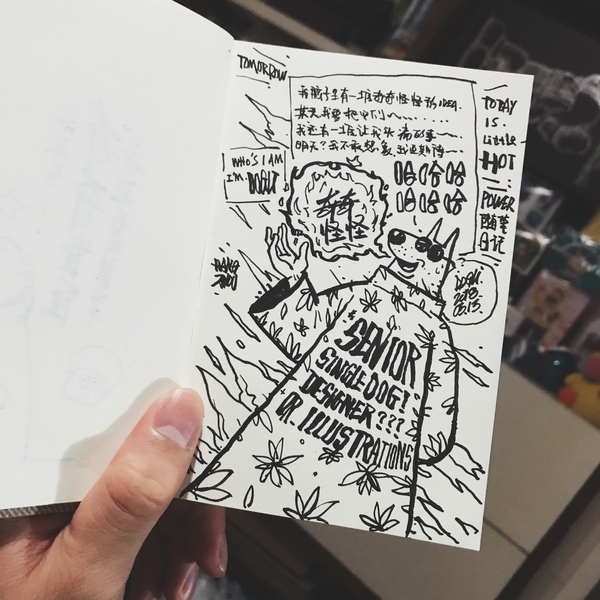 TOMORROW
我脑子里有一堆奇奇怪怪的IDEA.
某天我要把它们~......
我还有一堆让我头痛的事~.
明天?我不敢想象,
WHO'S I AM
I'M. DOGUT
哈哈哈
哈哈哈
奇奇
怪怪
TODAY
IS.
Little
HOT
POWER
随笔
日记
2018.
05.15.
SENIOR
SINGLE DOG!
DESIGNER???
OR. ILLUSTRATIONS